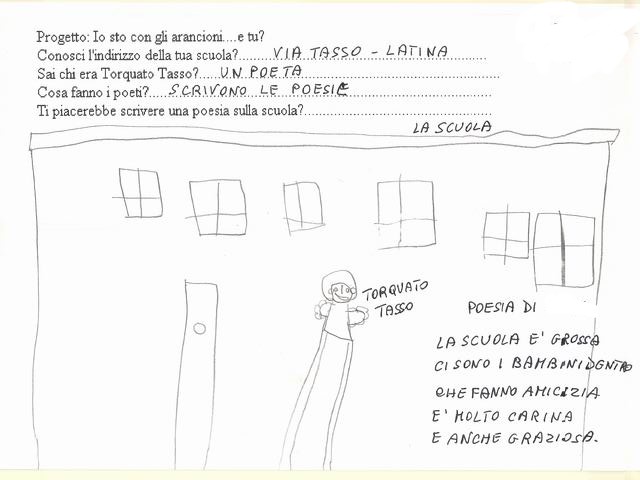 Progetto: Io sto con gli arancioni....e tu?
Conosci l'indirizzo della tua scuola?......VIA TASSO - LATINA......
Sai chi era Torquato Tasso?....UN POETA....
Cosa fanno i poeti?....SCRIVONO LE POESIE....
Ti piacerebbe scrivere una poesia sulla scuola?....
LA SCUOLA
TORQUATO
TASSO
POESIA DI
LA SCUOLA E' GROSSA
CI SONO I BAMBINI DENTRO
CHE FANNO AMICIZIA
E' MOLTO CARINA
E ANCHE GRAZIOSA.